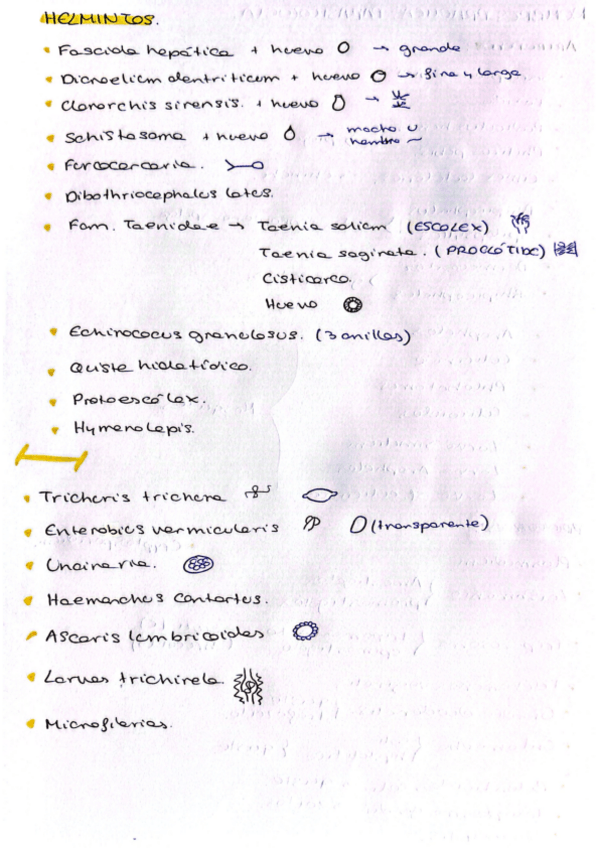 HELMINTOS.
Fasciola hepática + huevo → grande
Dicroelium dentriticum + huevo → fina y larga.
Clonorchis sinensis. + huevo →
Schistosoma + huevo → macho
hembra
Furcocercaria.
Dibothriocephalus latus.
Fam. Taenidae → Taenia solium (ESCOLEX)
Taenia saginata. (PROGLÓTIDE)
Cisticerco.
Huevo
Echinococus granulosus. (3 anillos)
Quiste hidatídico.
Protoescólex.
Hymenolepis.
Trichuris trichura
Enterobius vermicularis (transparente)
Uncinaria.
Haemonchus contortus.
Ascaris lumbricoides
Larvas trichinela
Microfilarias.